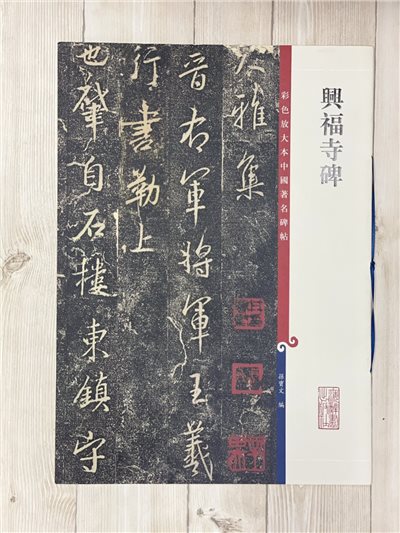 興福寺碑
彩色放大本中國著名碑帖
孫寶文 編
大雅集
晋右軍將軍王羲
行書勒上
也肇自石樓東鎮守